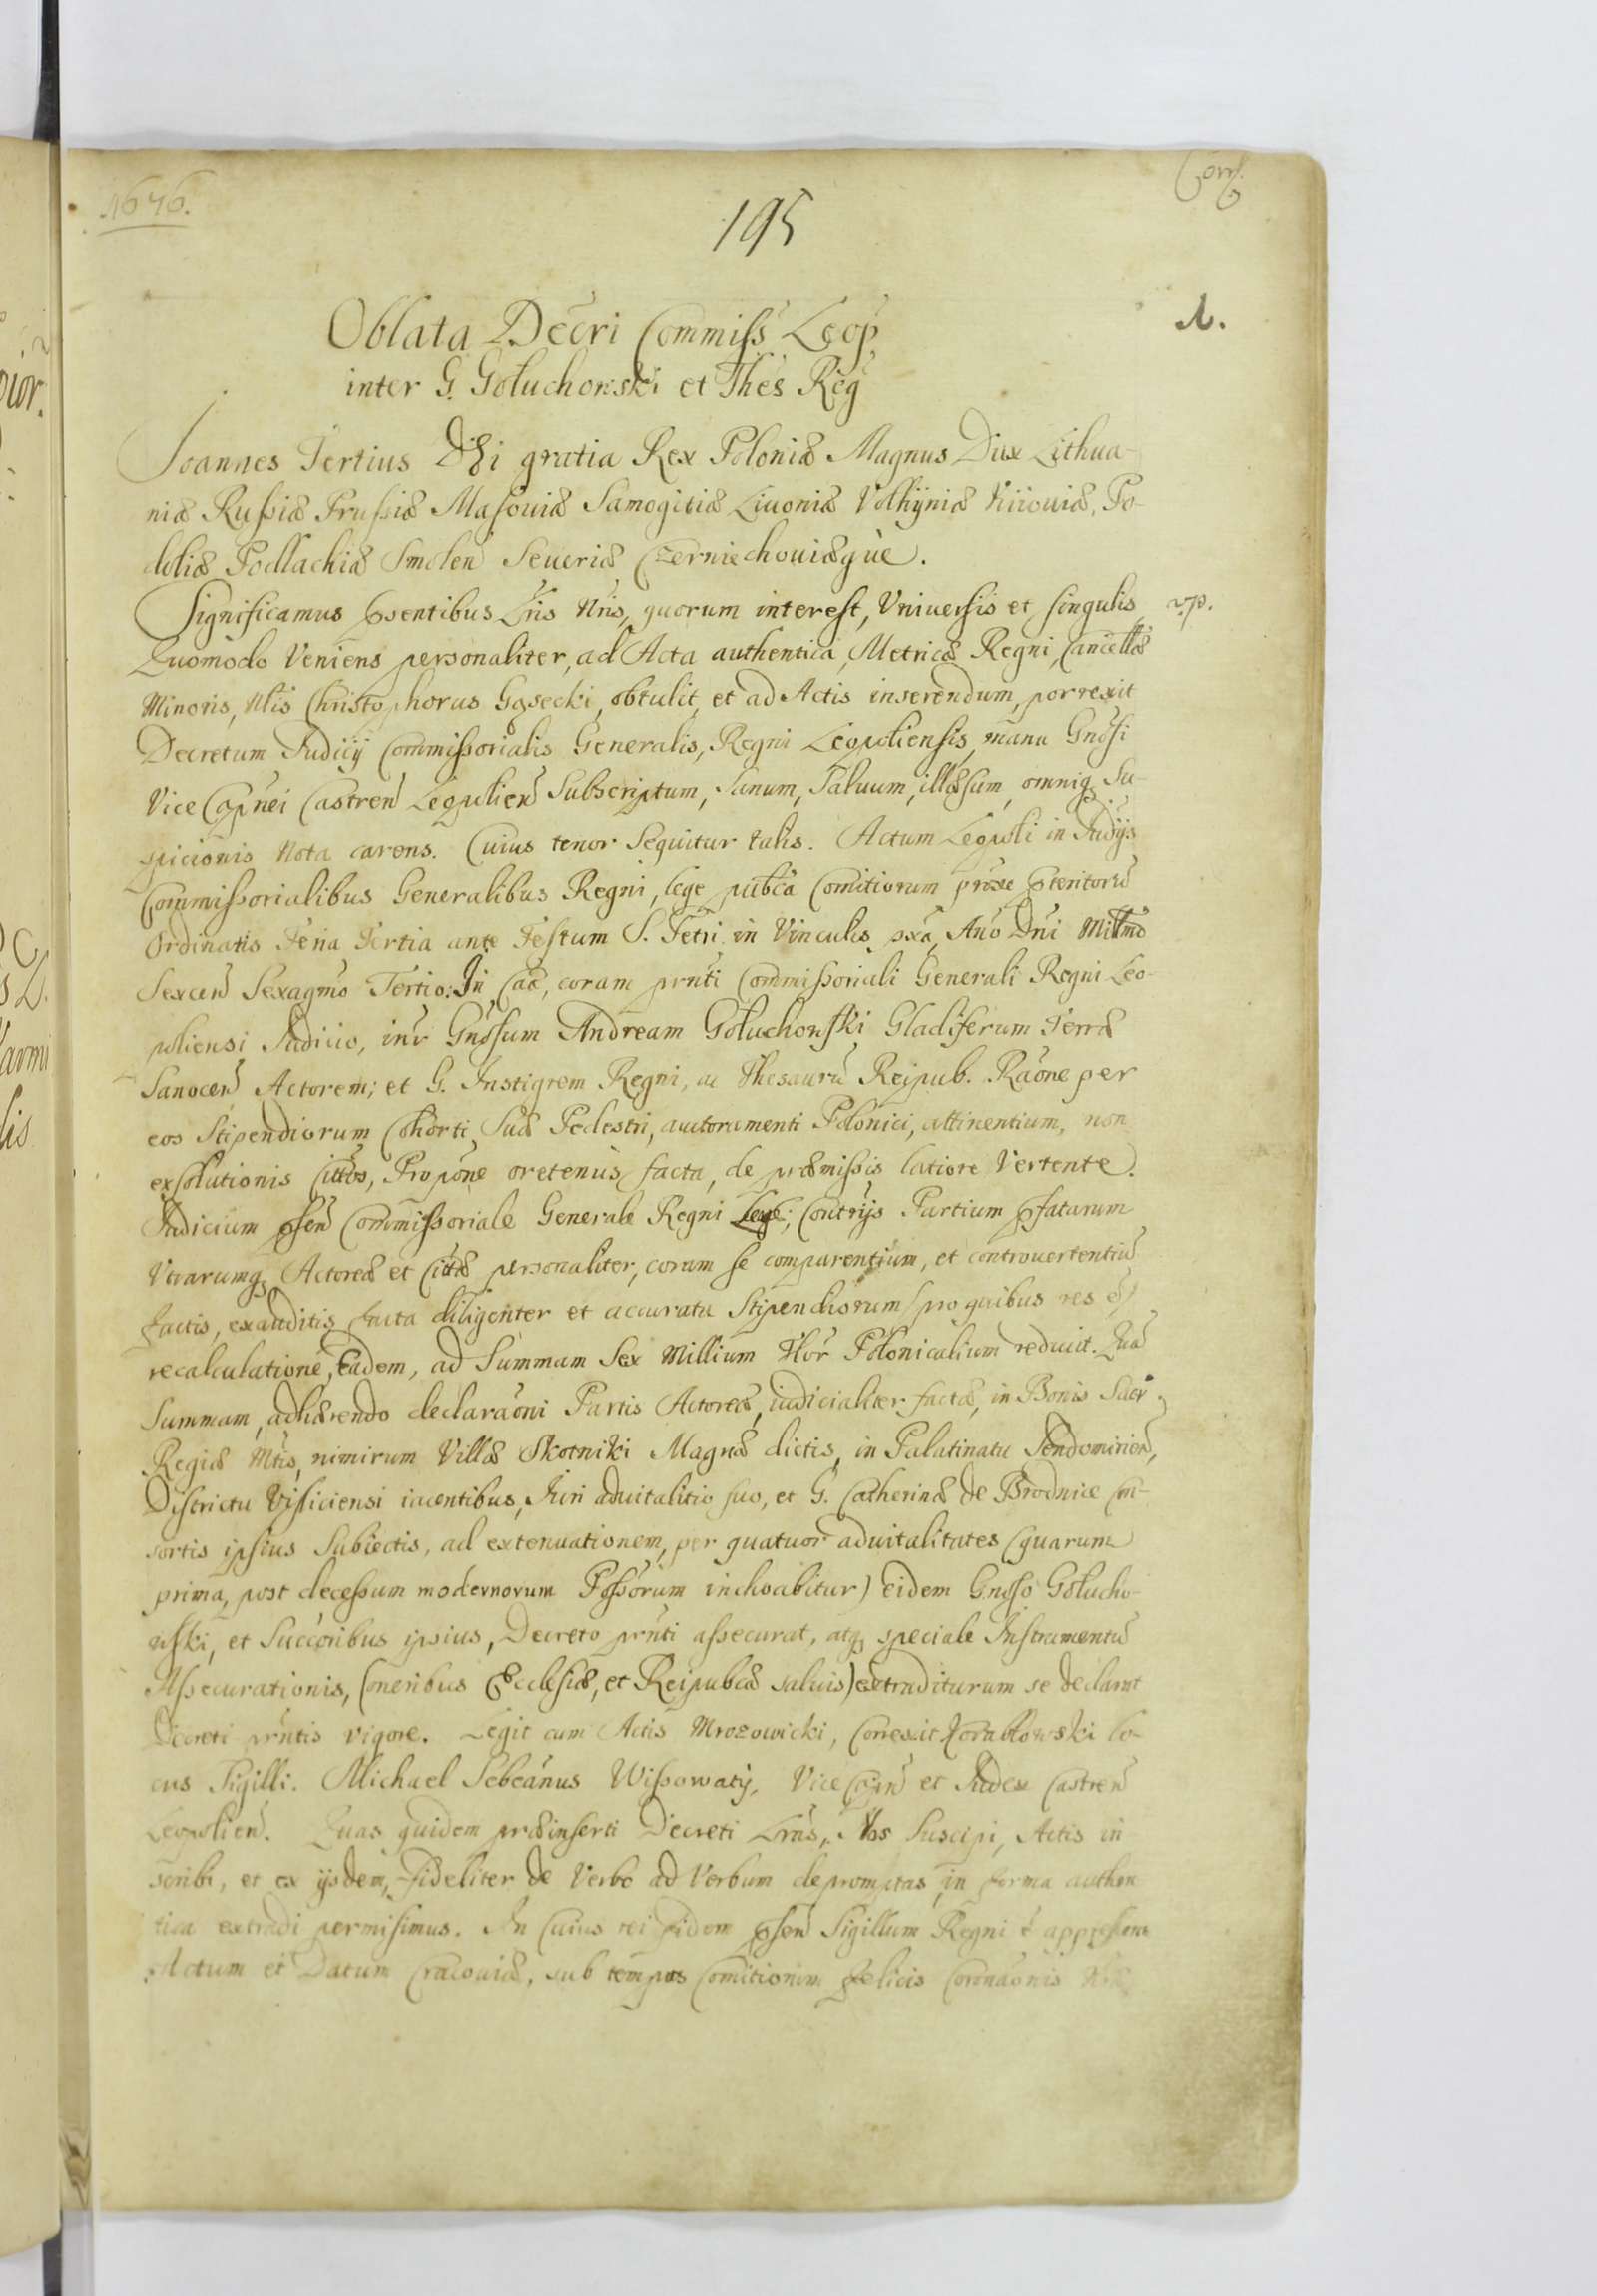 1676.
Corr.
195
1.
Oblata Decri Commiss Leop.
inter G. Gołuchowski et Thes Reg
Joannes Tertius Dei gratia Rex Poloniæ Magnus Dux Lithua-
niæ Russiæ Prussiæ Masouiæ Samogitiæ Liuoniæ Volhÿniæ Kiiouiæ, Po-
doliæ Podlachiæ Smolen Seueriæ Czerniechouiæque.
Significamus Pṡentibus Lris Nris, quorum interest, Vniuersis et singulis
Quomodo Veniens personaliter, ad Acta authentica, Metricæ Regni, Cancellæ
Minoris, Nlis Christophorus Gąsecki, obtulit, et ad Actis inserendum, porrexit
Decretum Judicÿ Commissorialis Generalis, Regni Leopoliensis, manu Gnosi
Vice Capnei Castren Leopolien Subscriptum, Sanum, Saluum, illæsum, omniq Su-
spicionis Nota carens. Cuius tenor Sequitur talis. Actum Leopoli in Judÿs
Commissorialibus Generalibus Regni, lege publca Comitiorum proxe Pteritoru
Ordinatis Feria Tertia ante Festum S. Petri in Vinculis pxa, Ano Dni Millmo
Sexcen Sexagmo Tertio: In Caa, coram prnti Commissoriali Generali Regni Leo-
poliensi Judicio, intr Gnosum Andream Gołuchowski Gladiferum Terræ
Sanocen Actorem; et G. Instigrem Regni, ac Thesauru Reipub. Raone per
eos Stipendiorum Cohorti Suæ Pedestri, auctoramenti Polonici, attinentium, non
exsolutionis Cittos, Propone oretenus facta, de præmissis latiore Vertente.
Judicium Psen Commissoriale Generale Regni Leop; Contrÿs Partium Pfatarum
Vtrarumq Actoreæ et Cittæ personaliter, coram se comparentium, et controuertentiu
factis, exauditis facta diligenter et accurata Stipendiorum (pro quibus res e)
recalculatione, Eadem, ad Summam Sex Millium Flor Polonicalium reduxit. Qua
Summam, adhærendo declaraoni Partis Actoreæ, iudicialiter factæ, in Bonis Sacr
Regiæ Mtis, nimirum Villæ Skotniki Magnæ dictis, in Palatinatu Sendomirien,
Districtu Visliciensi iacentibus, Juri aduitalitio suo, et G. Catherinæ de Brodnice Con-
sortis ipsius Subiectis, ad extenuationem, per quatuor aduitalitates (quarum
prima, post decessum modernorum Possorum inchoabitur) eidem Gnoso Gołucho-
wski, et Succoribus ipsius, Decreto prnti assecurat, atq speciale Instrumentu
Assecurationis, (oneribus Ecclesiæ, et Reipubcæ saluis) extraditurum se declarat
Decreti prntis vigore. Legit cum Actis Mrozowicki, Correxit Korabłowski lo-
cus Sigilli. Michael Sebeanus Wissowatÿ, Vice Capn et Judex Castren
Leopolien. Quas quidem præinserti Decreti Lras, Nos Suscipi, Actis in
scribi, et ex ijsdem, fideliter de Verbo ad Verbum depromptas, in forma authen
tica extradi permisimus. In Cuius rei fidem Psen Sigillum Regni e appressum
Actum et Datum Cracouiæ, sub tempus Comitiorum felicis Coronaonis